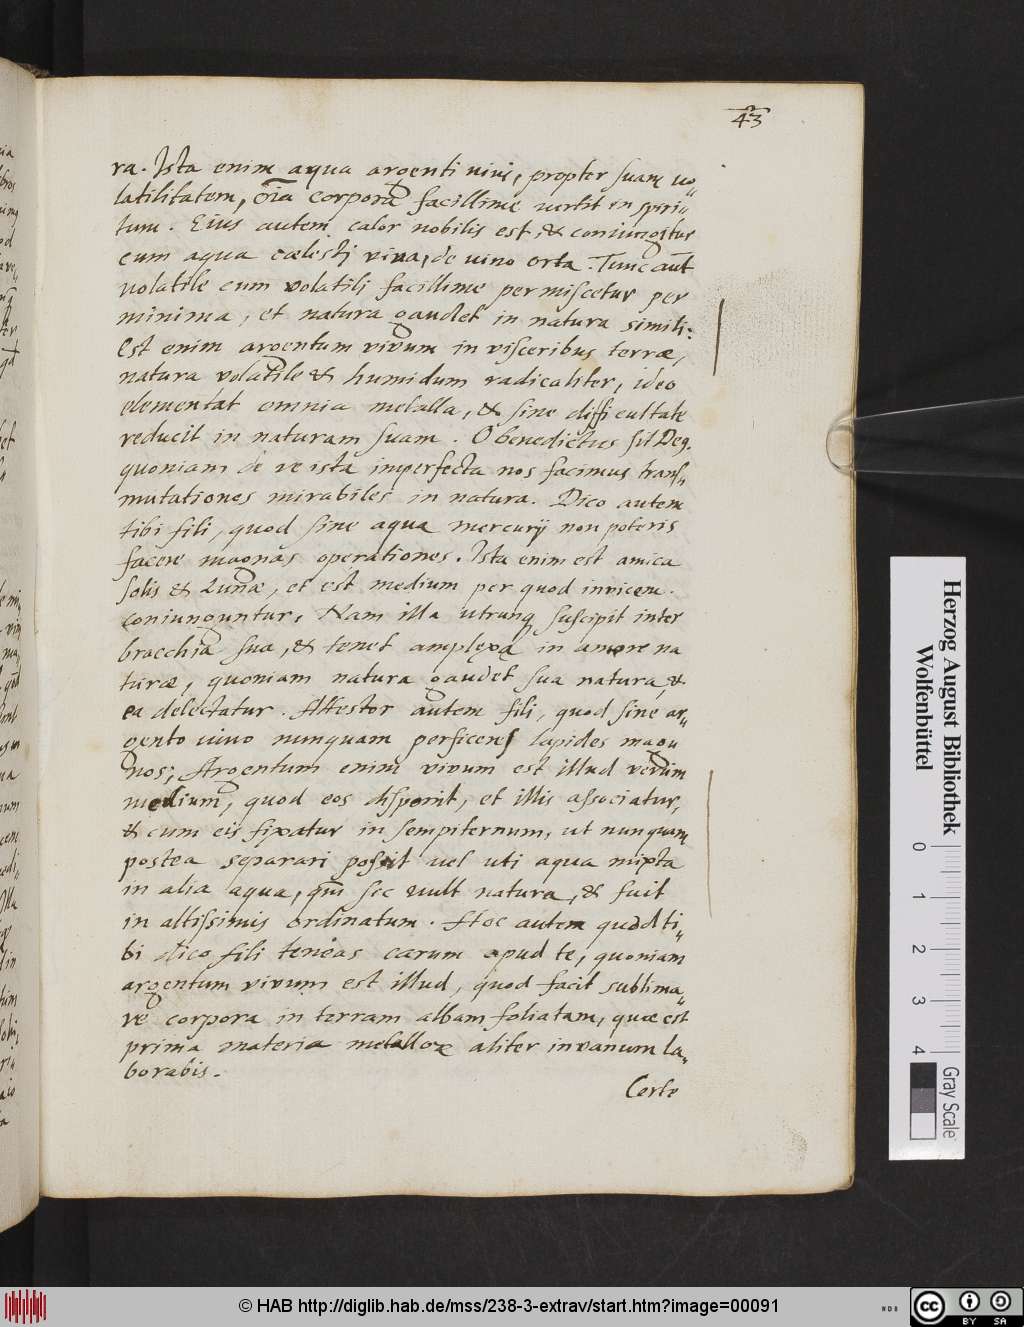 43
ra. Ista enim aqua argenti vivi, propter suam vo„
latilitatem, oīa corpora facillime vertit in spiri„
tum. Eius autem calor nobilis est, & coniungitur
cum aqua cælesti viva, de vino orta. Tunc aut
volatile cum volatili facillime permiscetur per
minima, et natura gaudet in natura simili.
Est enim argentum vivum in visceribus terræ,
natura volatile & humidum radicaliter, ideo
elementat omnia metalla, & sine difficultate
reducit in naturam suam. O benedictus sit De9.
quoniam de re ista imperfecta nos facimus trans„
mutationes mirabiles in natura. Dico autem
tibi fili, quod sine aqua mercurij non poteris
facere magnas operationes. Ista enim est amica
solis & Lunæ, et est medium per quod invicem
coniunguntur, Nam illa utrunq suscipit inter
bracchia sua, & tenet amplexa in amore na
turæ, quoniam natura gaudet sua natura, &
ea delectatur. Attestor autem fili, quod sine ar„
gento vivo nunquam perficeris lapides mag
nos; Argentum enim vivum est illud verum
medium, quod eos disponit, et illis associatur,
& cum eis fixatur in sempiternum, ut nunquam
postea separari possit vel uti aqua mixta
in alia aqua, qm sic vult natura, & fuit
in altissimis ordinatum. Hoc autem quod ti„
bi dico fili teneas carum apud te, quoniam
argentum vivum est illud, quod facit sublima„
re corpora in terram albam foliatam, quæ est
prima materia metalloꝝ aliter in vanum la„
borabis.
Certe
Herzog August Bibliothek
Wolfenbüttel
0 1 2 3 4
Gray Scale
© HAB http://diglib.hab.de/mss/238-3-extrav/start.htm?image=00091
NDB
cc BY SA